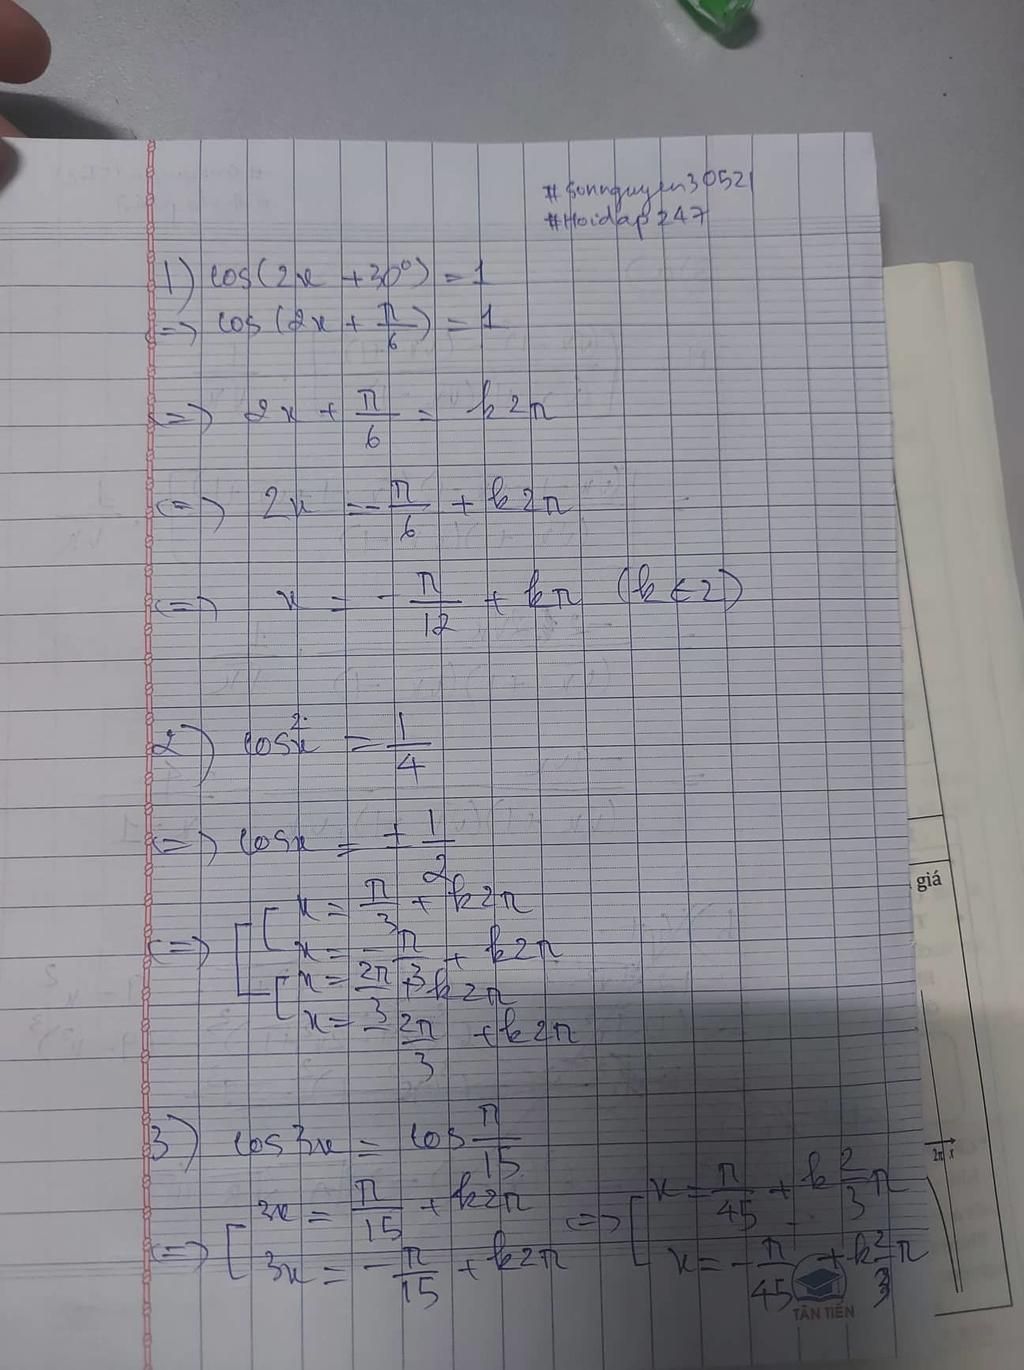 #Sonnguyen30521
#Hoidap247
1) cos(2x + 30°) = 1
<=> cos(2x + π/6) = 1
<=> 2x + π/6 = k2π
<=> 2x = -π/6 + k2π
<=> x = -π/12 + kπ (k ∈ Z)
2) cos²x = 1/4
<=> cosx = ±1/2
<=> [ [ x = π/3 + k2π
x = -π/3 + k2π
[ x = 2π/3 + k2π
x = -2π/3 + k2π
3) cos3x = cos π/15
<=> [ 3x = π/15 + k2π <=> [ x = π/45 + k 2/3 π
3x = -π/15 + k2π x = -π/45 + k 2/3 π
giá
2π
TÂN TIẾN